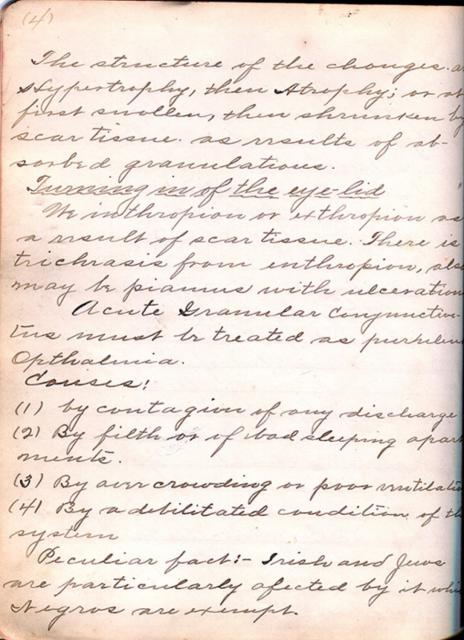 (4)
The structure of the changes. a
Hypertrophy, then Atrophy; or at
first swollen, then shrunken by
scar tissue. as results of ab-
sorbed granulations.
Turning in of the eye-lid
We inthropion or exthropion as
a result of scar tissue. There is
trichrasis from enthropion, also
may be piannus with ulceration
Acute Granular Conjunctiv-
tus must be treated as purhelen
Opthalmia.
Causes:
(1) by contagion of any discharge
(2) By filth or of bad sleeping apart
ments.
(3) By over crowding or poor ventilatio
(4) By a debilitated condition of th
system
Peculiar fact:- Irish and Jews
are particularly afected by it whi
Negros are exempt.